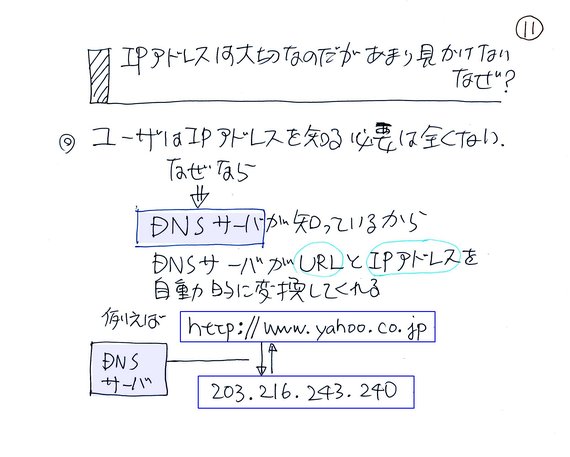 ⑪
IPアドレスは大切なのだがあまり見かけない
なぜ?
◎ ユーザはIPアドレスを知る必要は全くない.
なぜなら
⇓
DNSサーバが知っているから
DNSサーバがURLとIPアドレスを
自動的に変換してくれる
例えば
http://www.yahoo.co.jp
DNS
サーバ
203.216.243.240